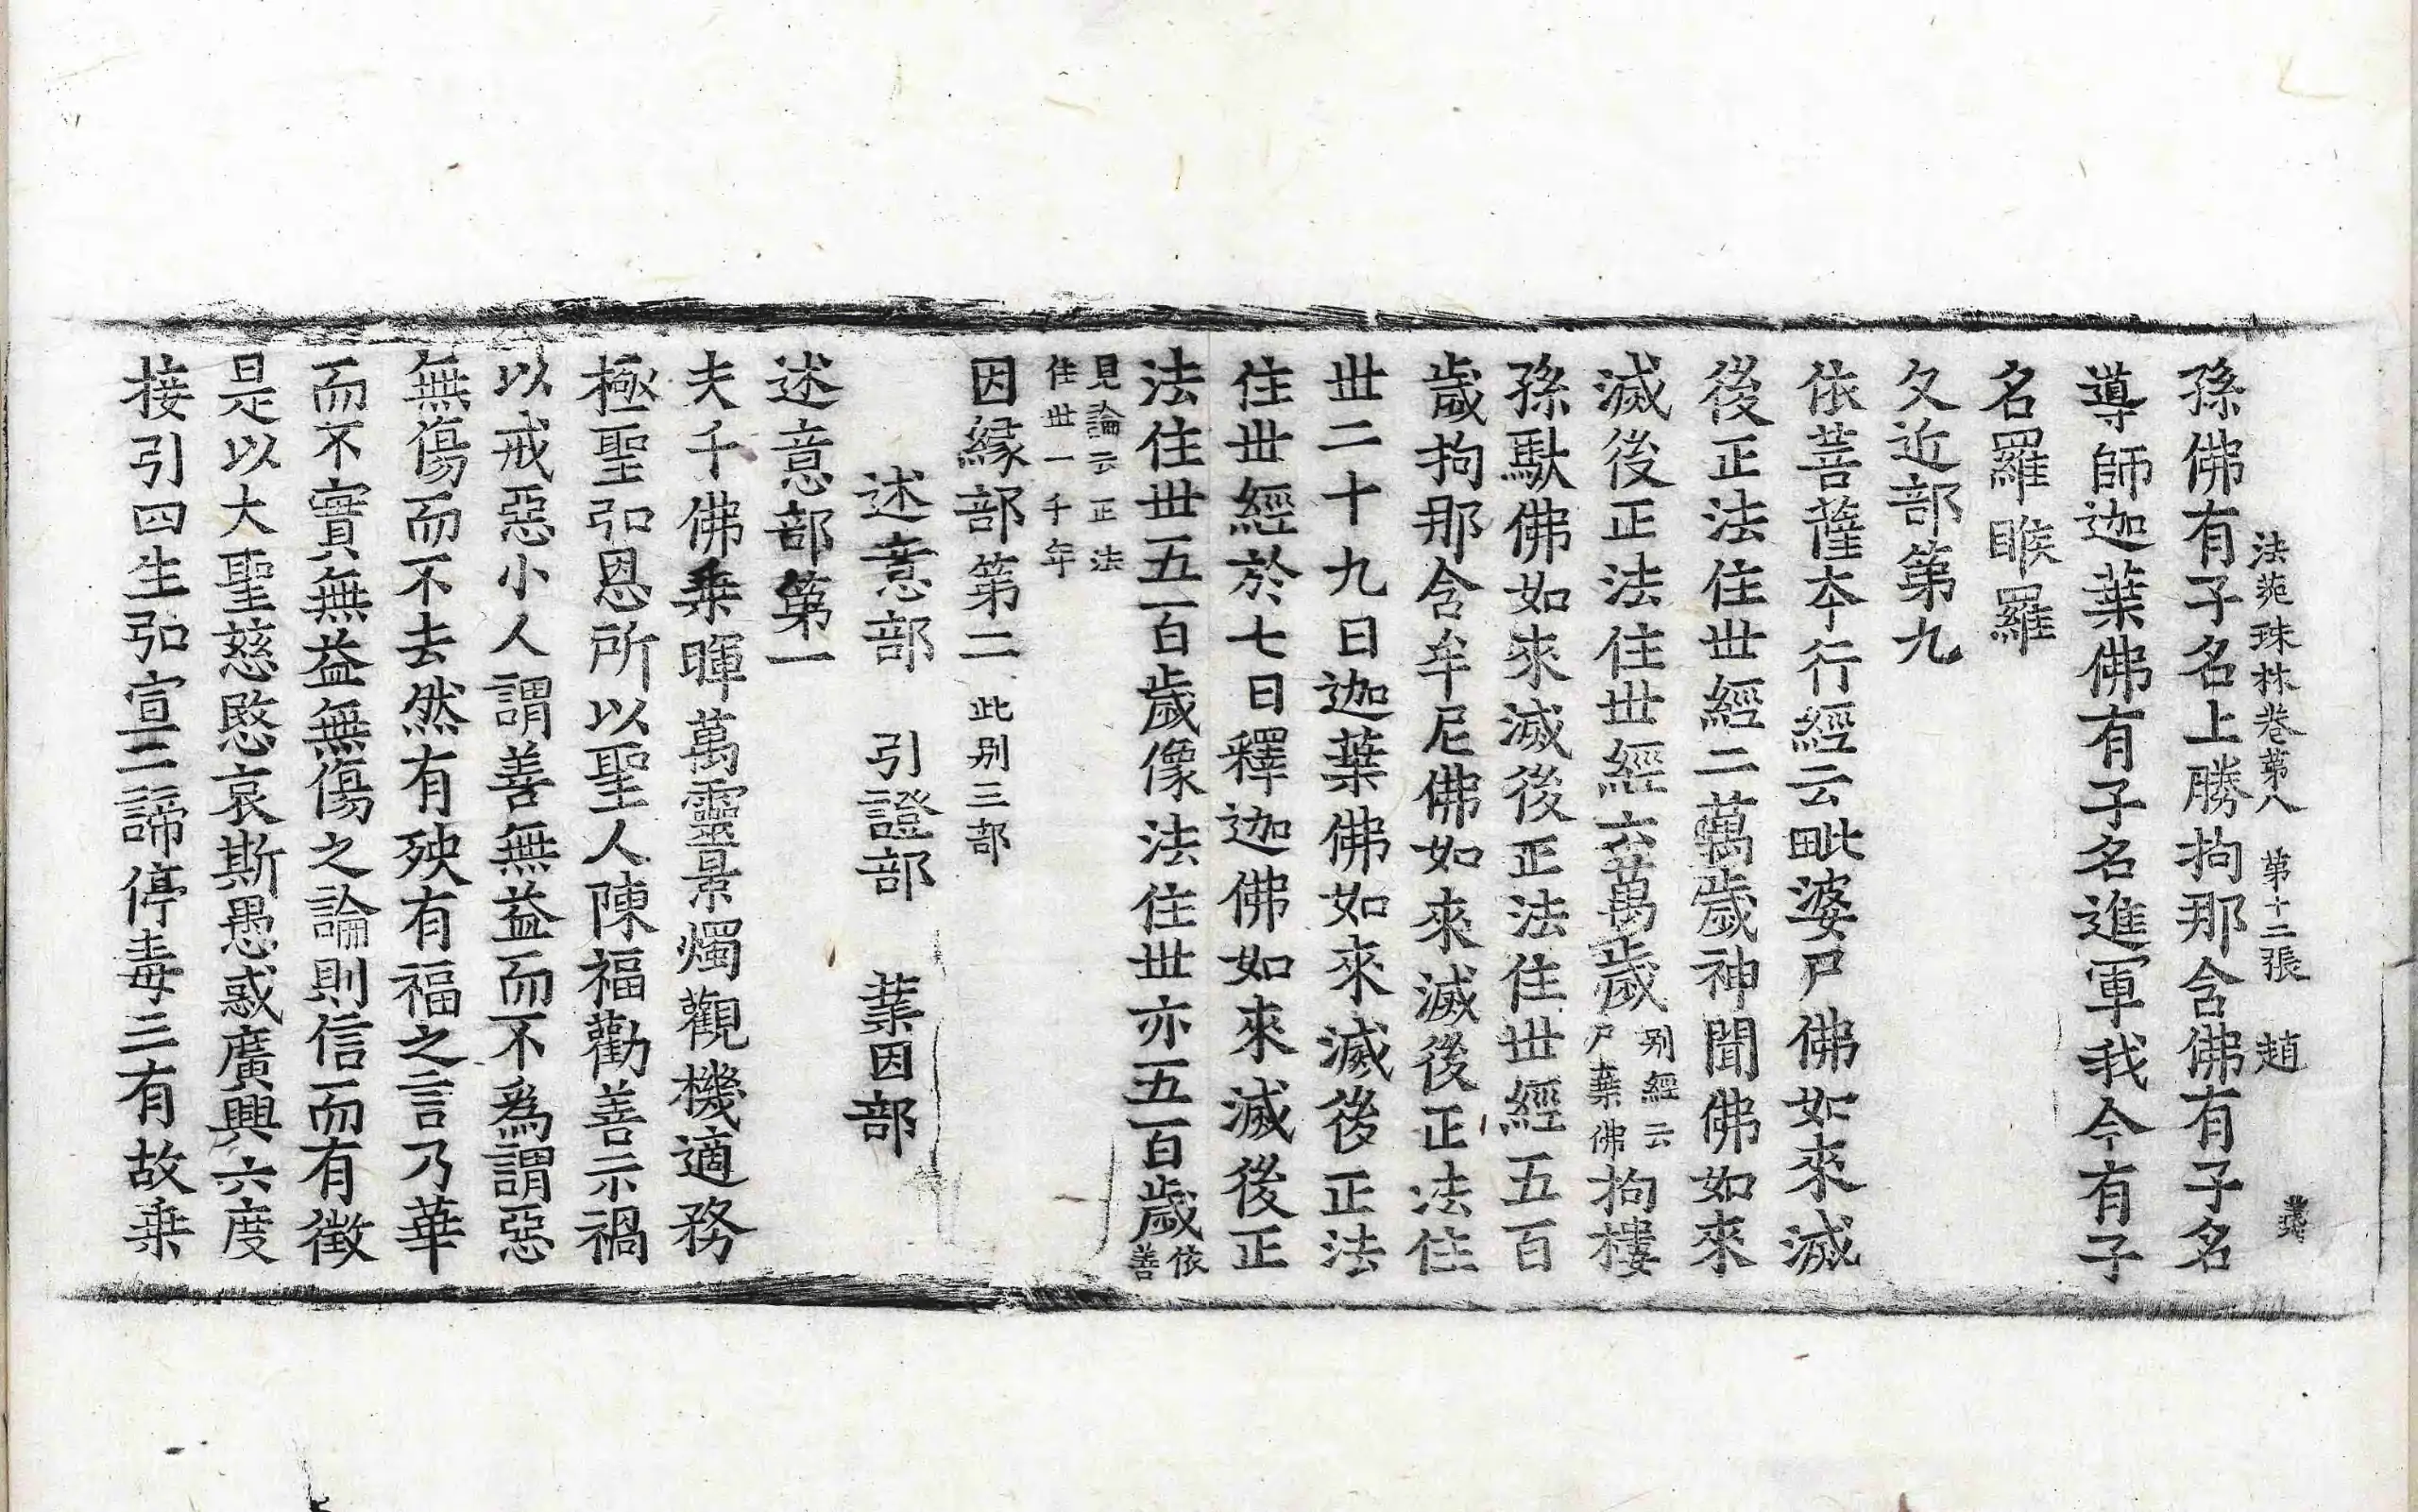 法苑珠林卷第八 第十二張 趙
孫佛有子名上勝拘那含佛有子名
導師迦葉佛有子名進軍我今有子
名羅睺羅
久近部第九
依菩薩本行經云毗婆尸佛如來滅
後正法住世經二萬歲神聞佛如來
滅後正法住世經六萬歲別經云尸棄佛拘樓
孫馱佛如來滅後正法住世經五百
歲拘那含牟尼佛如來滅後正法住
世二十九日迦葉佛如來滅後正法
住世經於七日釋迦佛如來滅後正
法住世五百歲像法住世亦五百歲依善
見論云正法住世一千年
因緣部第二 此別三部
述意部 引證部 業因部
述意部第一
夫千佛乘暉萬靈景燭觀機適務
極聖弘恩所以聖人陳福勸善示禍
以戒惡小人謂善無益而不為謂惡
無傷而不去然有殃有福之言乃華
而不實無益無傷之論則信而有徵
是以大聖慈愍哀斯愚惑廣興六度
接引四生弘宣二諦停毒三有故乘